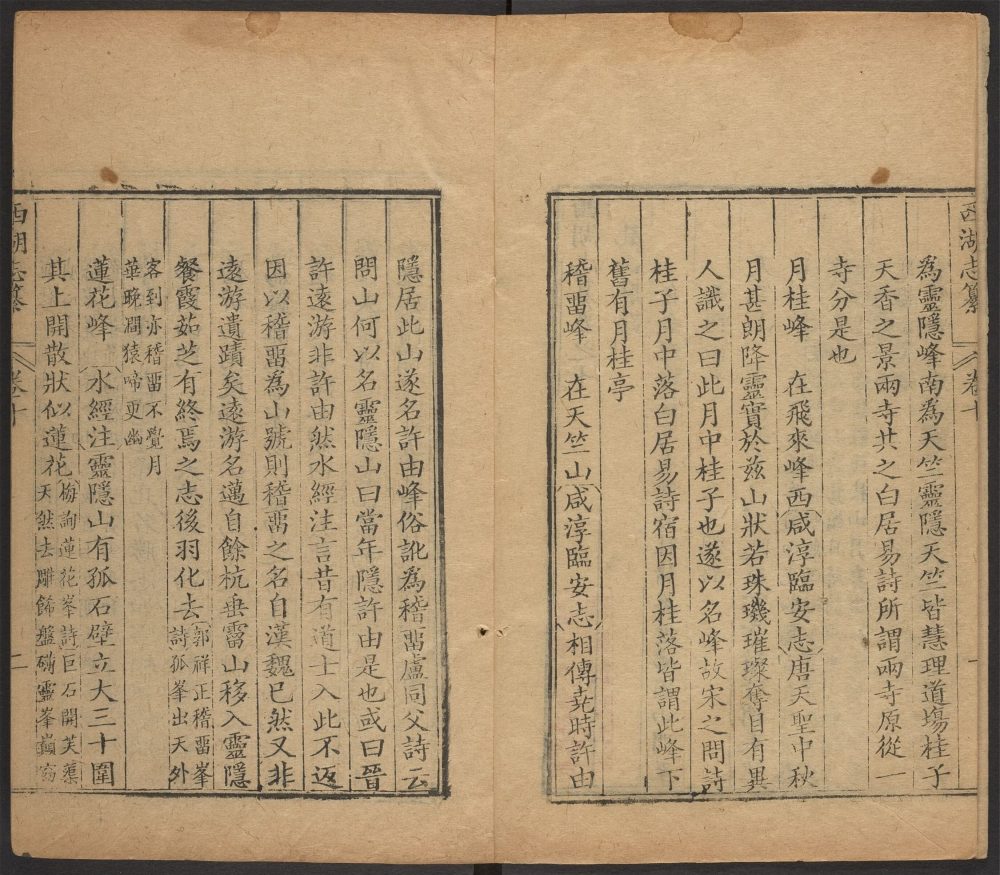 西湖志纂
卷十
一
為靈隱峰南為天竺靈隱天竺皆慧理道場桂子
天香之景兩寺共之白居易詩所謂兩寺原從一
寺分是也
月桂峰 在飛來峰西咸淳臨安志唐天聖中秋
月甚朗降靈實於兹山狀若珠璣璀璨奪目有異
人識之曰此月中桂子也遂以名峰故宋之問詩
桂子月中落白居易詩宿因月桂落皆謂此峰下
舊有月桂亭
稽畱峰 在天竺山咸淳臨安志相傳堯時許由
隱居此山遂名許由峰俗訛為稽畱盧同父詩云
問山何以名靈隱山曰當年隱許由是也或曰晉
許遠游非許由然水經注言昔有道士入此不返
因以稽畱為山號則稽畱之名自漢魏已然又非
遠游遺蹟矣遠游名邁自餘杭垂霤山移入靈隱
餐霞茹芝有終焉之志後羽化去郭祥正稽畱峯
詩孤峯出天外
客到亦稽畱不覺月
華晚澗猿啼更幽
蓮花峰 水經注靈隱山有孤石壁立大三十圍
其上開散狀似蓮花梅詢蓮花峯詩巨石開芙蕖
天然去雕飾盤礴靈峯巔
西湖志纂
卷十
二